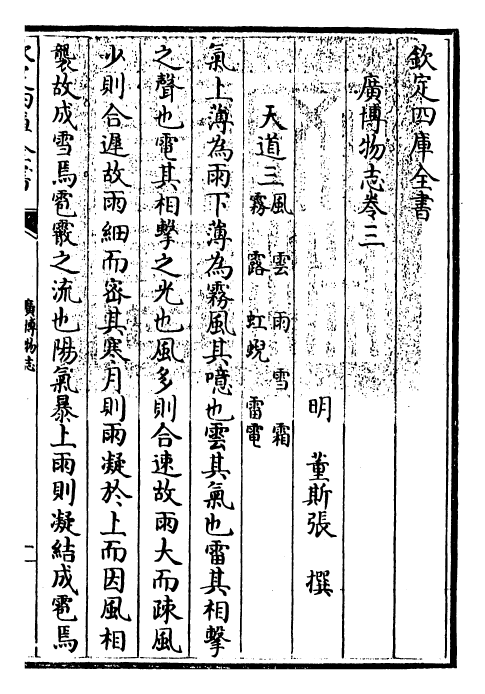 欽定四庫全書
廣博物志卷三
明　董斯張　撰
天道三風　雲　雨　雪　霜
霧　露　虹蜺　雷電
氣上薄為雨下薄為霧風其噫也雲其氣也雷其相擊
之聲也電其相擊之光也風多則合速故雨大而疎風
少則合遲故雨細而密其寒月則雨凝於上而因風相
襲故成雪焉雹霰之流也陽氣暴上雨則凝結成雹焉
廣博物志
一